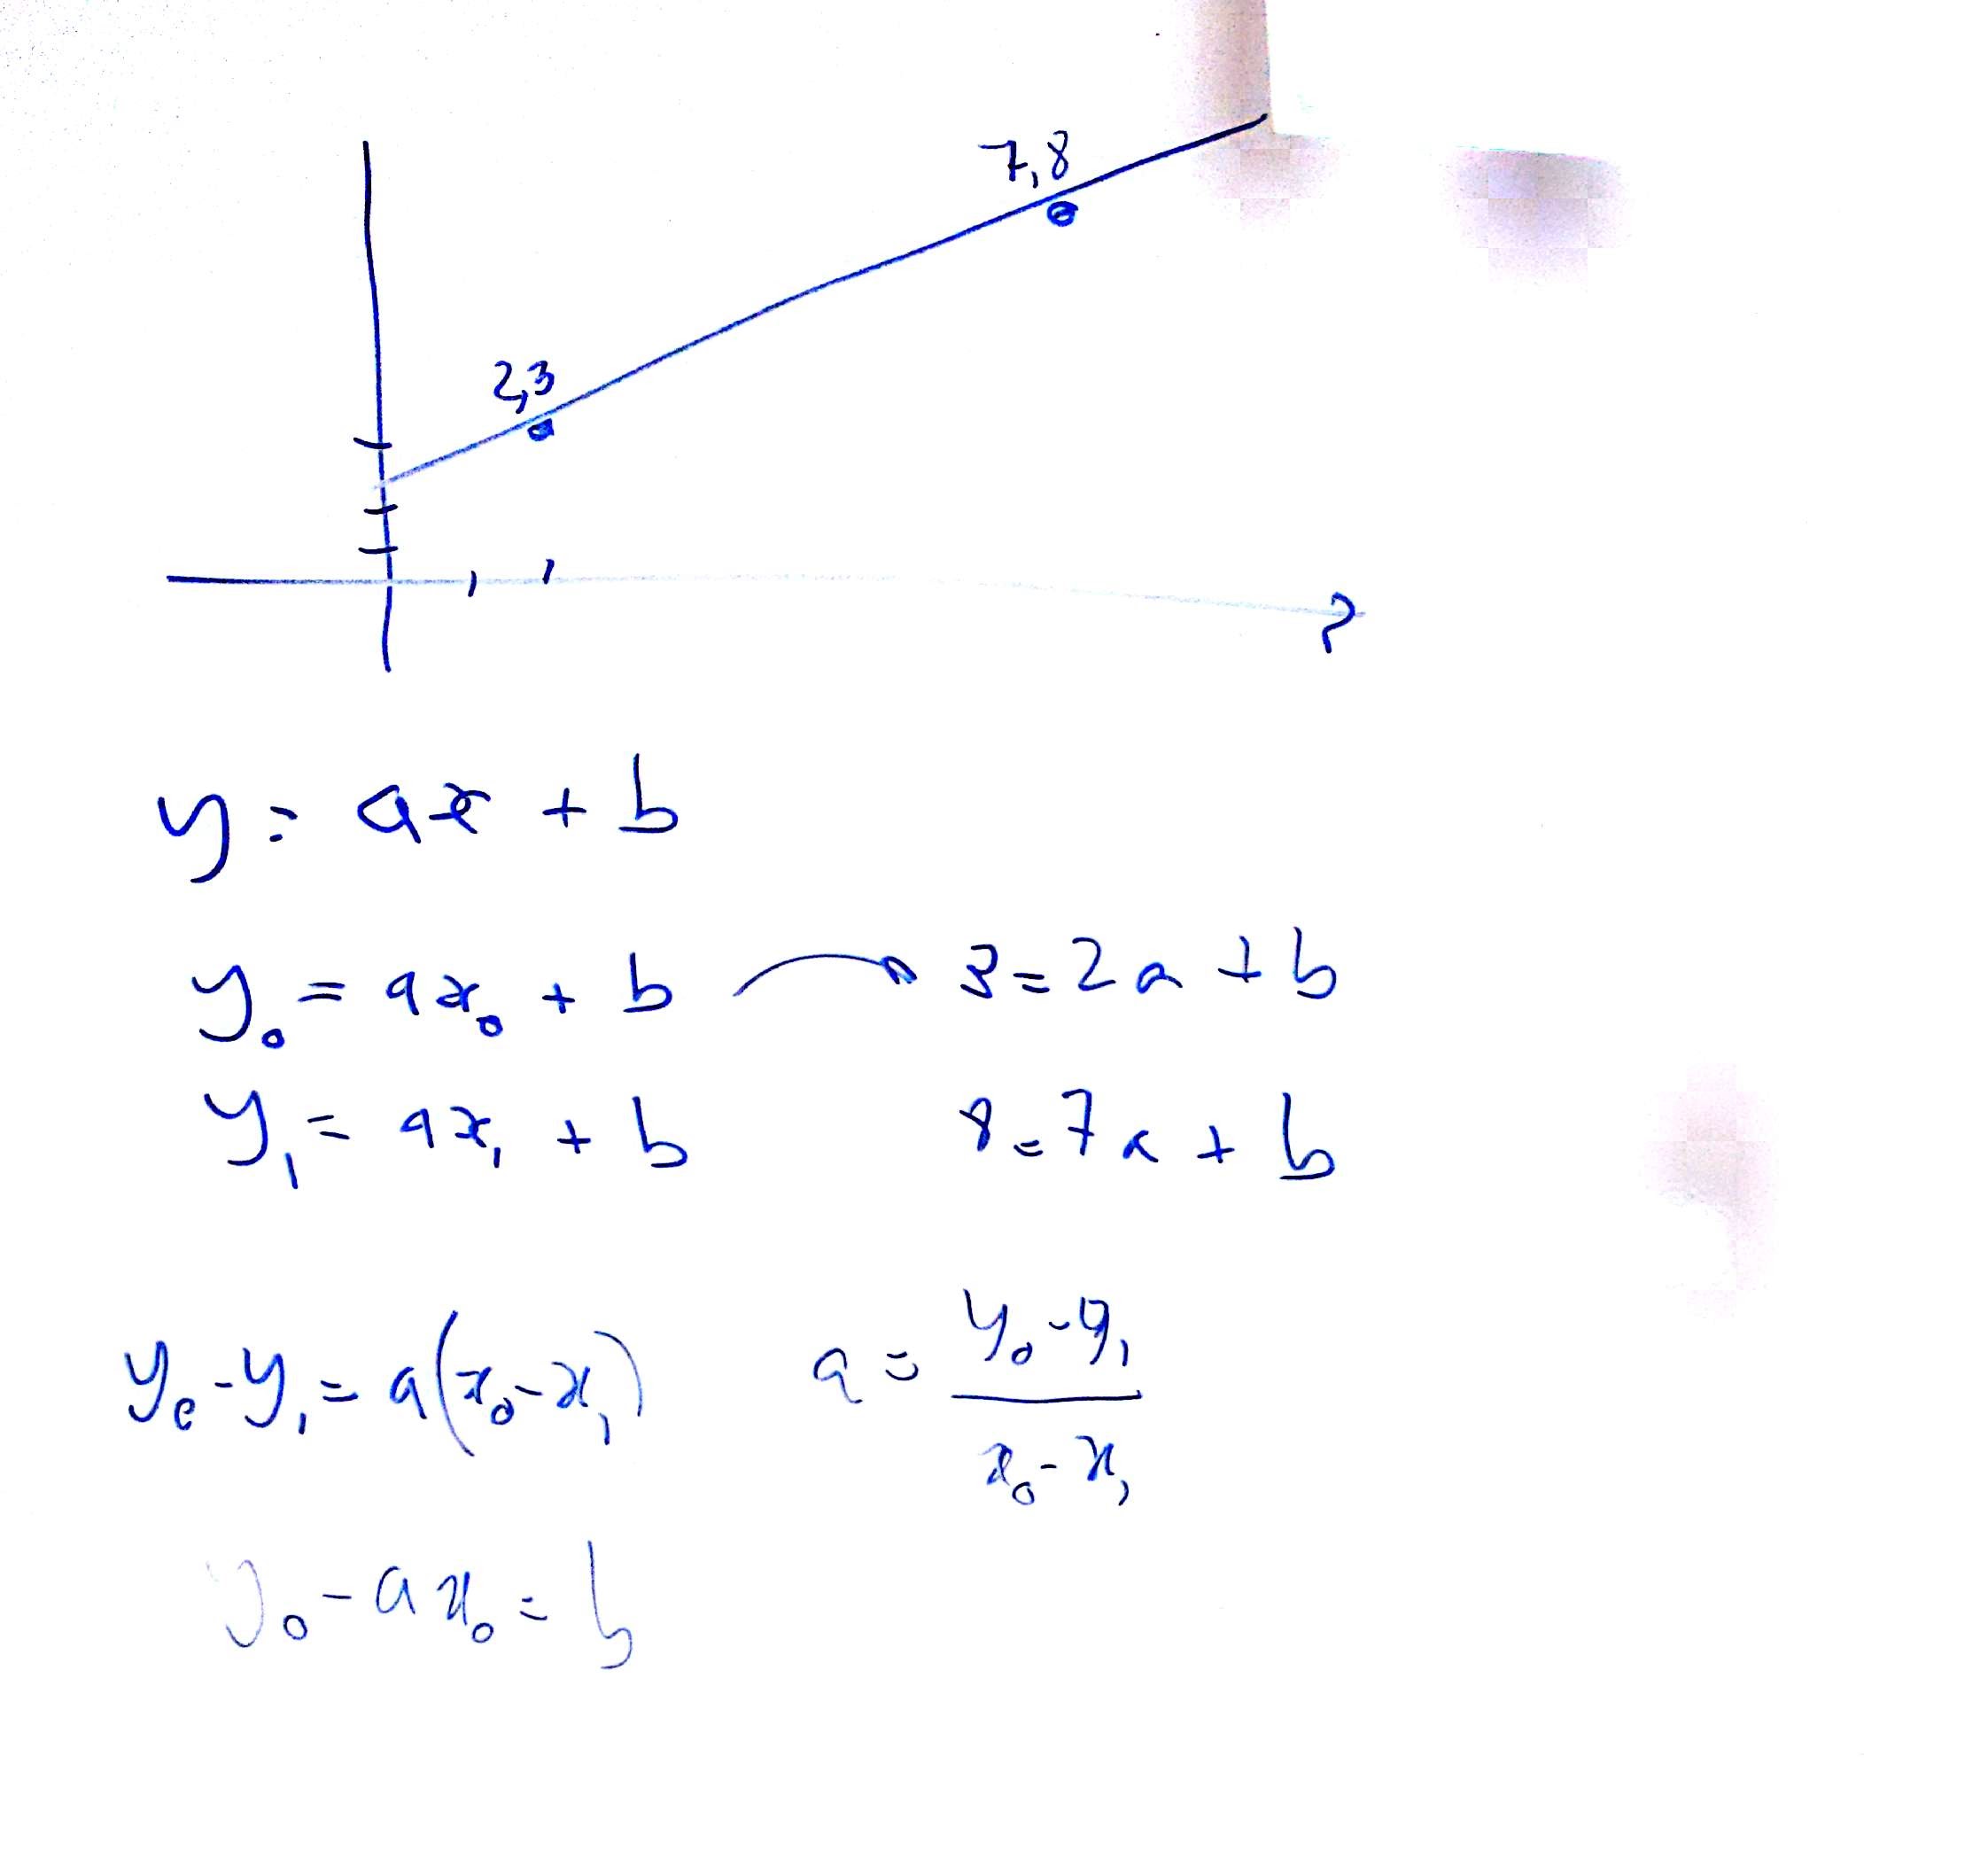 7,8
2,3
y = ax + b
y₀ = ax₀ + b → 3 = 2a + b
y₁ = ax₁ + b 8 = 7a + b
y₀ - y₁ = a(x₀ - x₁) a = (y₀ - y₁) / (x₀ - x₁)
y₀ - ax₀ = b